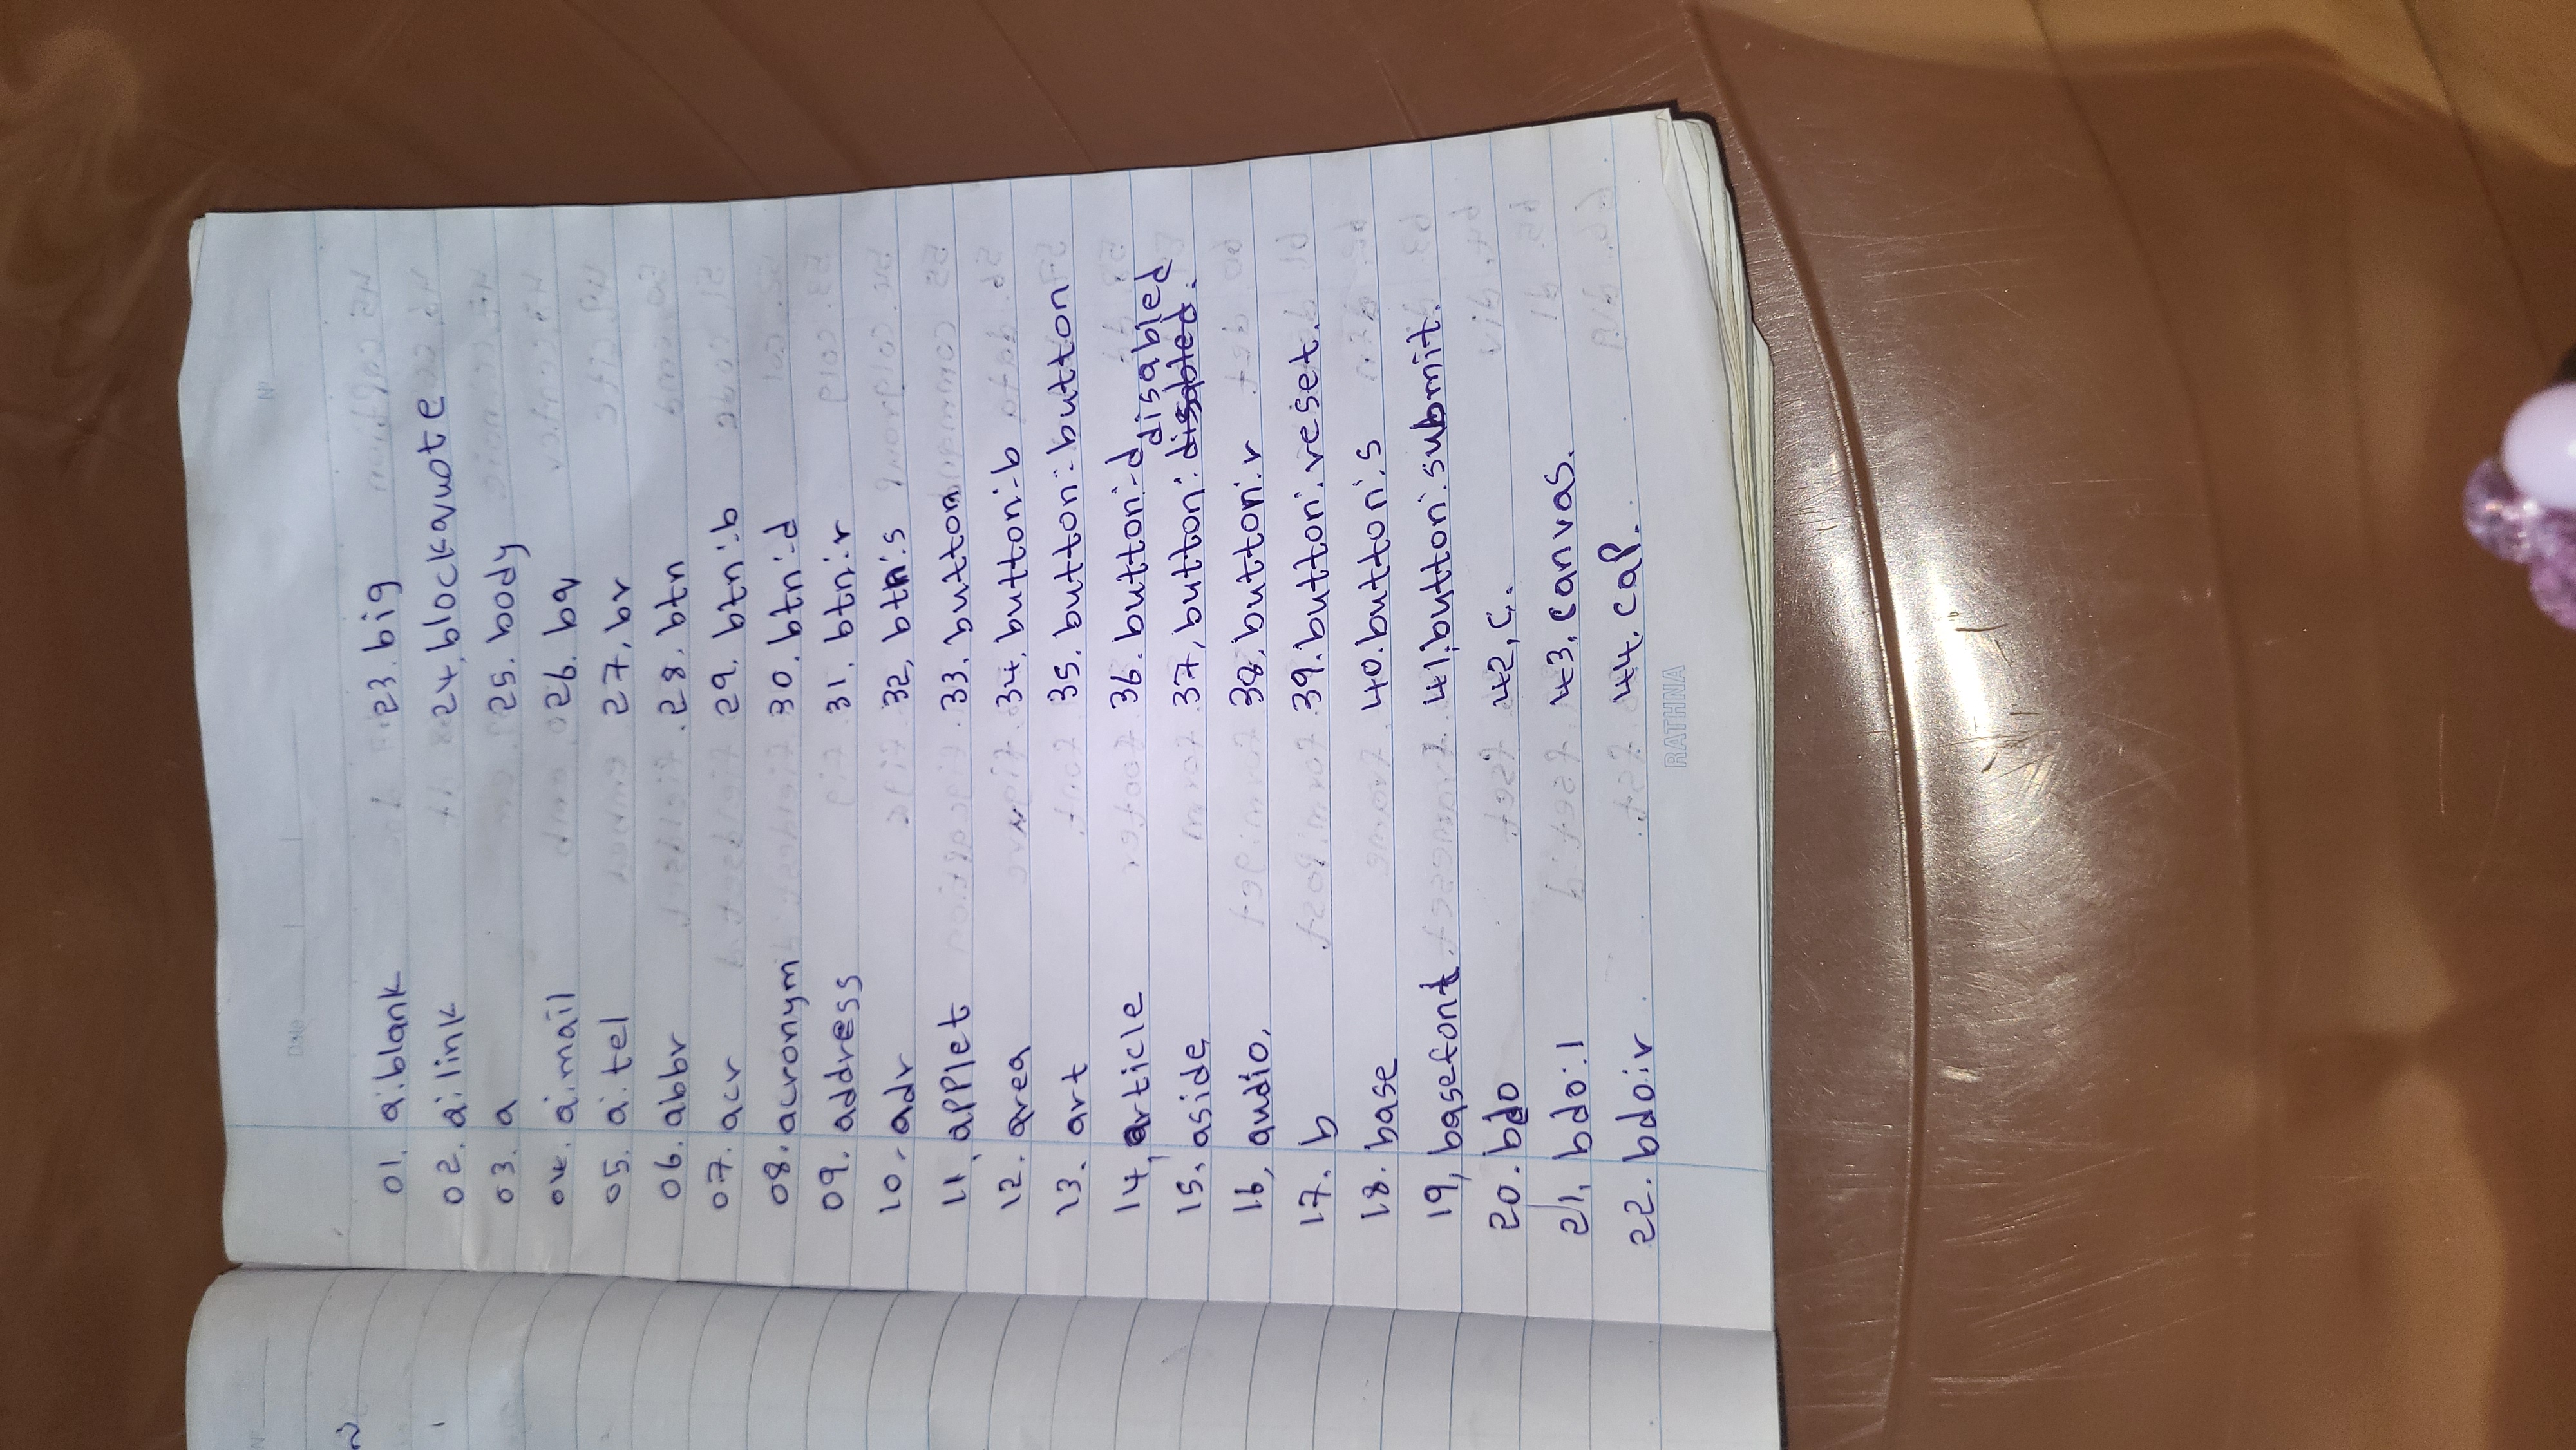 Nº
Date
Nº
01. a:blank
02. a:link
03. a
04. a:mail
05. a:tel
06. abbr
07. acr
08. acronym
09. address
10. adr
11, applet
12. area
13. art
14, article
15. aside
16, audio,
17. b
18. base
19, basefont
20. bdo
21, bdo:l
22. bdo:r
23. big
24, blockquote
25. body
26. bq
27, br
28. btn
29. btn:b
30. btn:d
31. btn:r
32, btn:s
33. button
34. button:b
35. button:button
36. button:d
disabled
37, button: disabled.
38, button:r
39. button:reset.
40. button:s
41, button:submit.
42, c.
43, canvas.
44. cap.
RATHNA